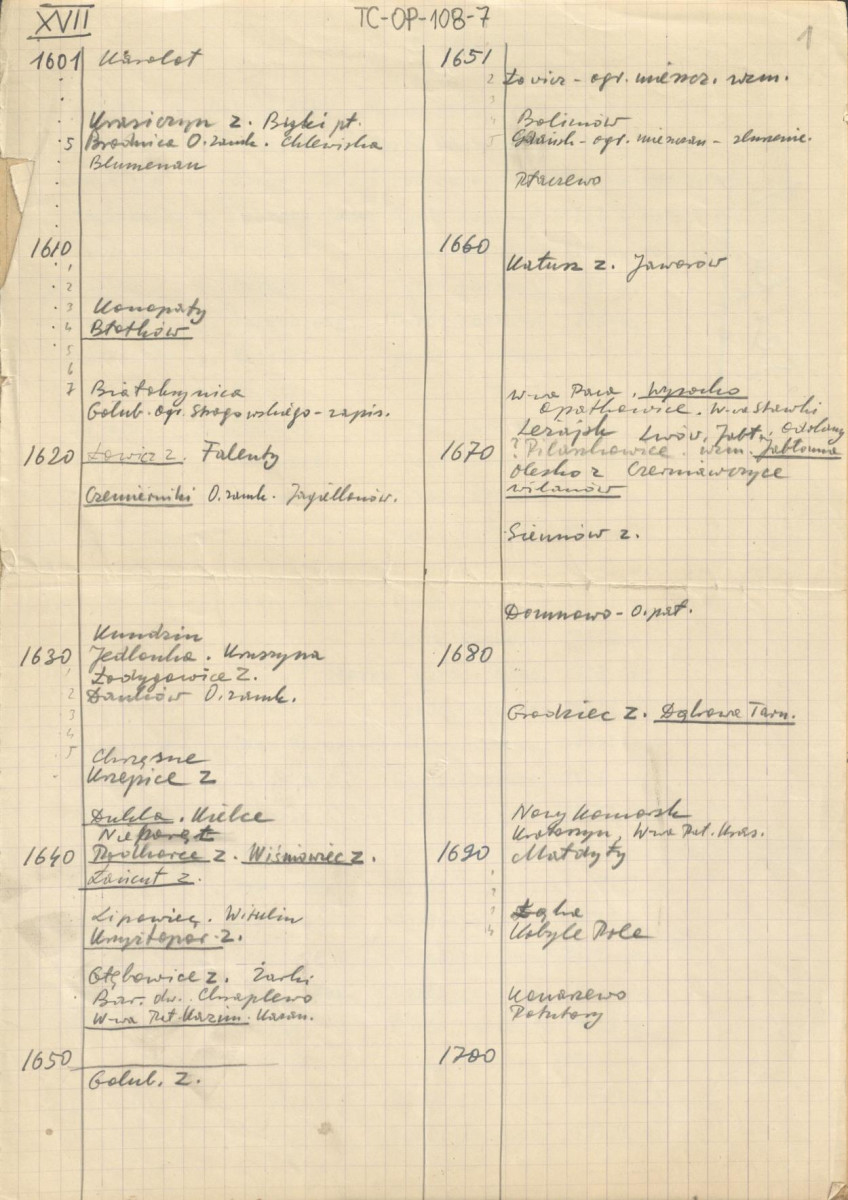 XVII
TC-OP-108-7
1
1601 Karolat
Krasiczyn z. Byki pt.
5 Brodnica O. zamk. Chlewiska
Blumenau
1610
1
2
3 Konopaty
4 Błotków
5
6
7 Białokrynica
Golub. ogr. Skogowskiego - zapis.
1620 Łowicz z. Falenty
Czemierniki O. zamk. Jagiellonów.
Kundzin
1630 Jedlonka. Kruszyna
1 Łodygowice z.
2 Danków O. zamk.
3
4
5 Chrzęsne
Krzepice z
Dukla. Kielce
Nieporęt
1640 Podhorce z. Wiśniowiec z.
Łańcut z.
Lipowiec. Witulin
Krzyżtopór z.
Głębowice z. Żarki
Bar. dw. Chraplewo
W-wa Pał. Kazim. Kazan.
1650
Golub. z.
1651
2 Łowicz - ogr. mieszcz. wzm.
3
4 Bolimów
5 Gdańsk - ogr. mieszczan - zlecenie.
Ptaszewo
1660
Kałusz z. Jaworów
W-wa Paca. Wysocko
Opatkowice. W-wa Stawki
Leżajsk Lwów, Jabł. Odolany
1670 ? Pilaszkowice. wzm. Jabłonna
Olesko z Czernawczyce
Wilanów
Sienniów z.
Domnowo - O. pat.
1680
Grodziec z. Dąbrowa Tarn.
Nowy Komorsk
Krotoszyn, W-wa Pał. Kras.
1690 Małdyty
Łąka
4 Kobyle Pole
Konarzewo
Potutory
1700